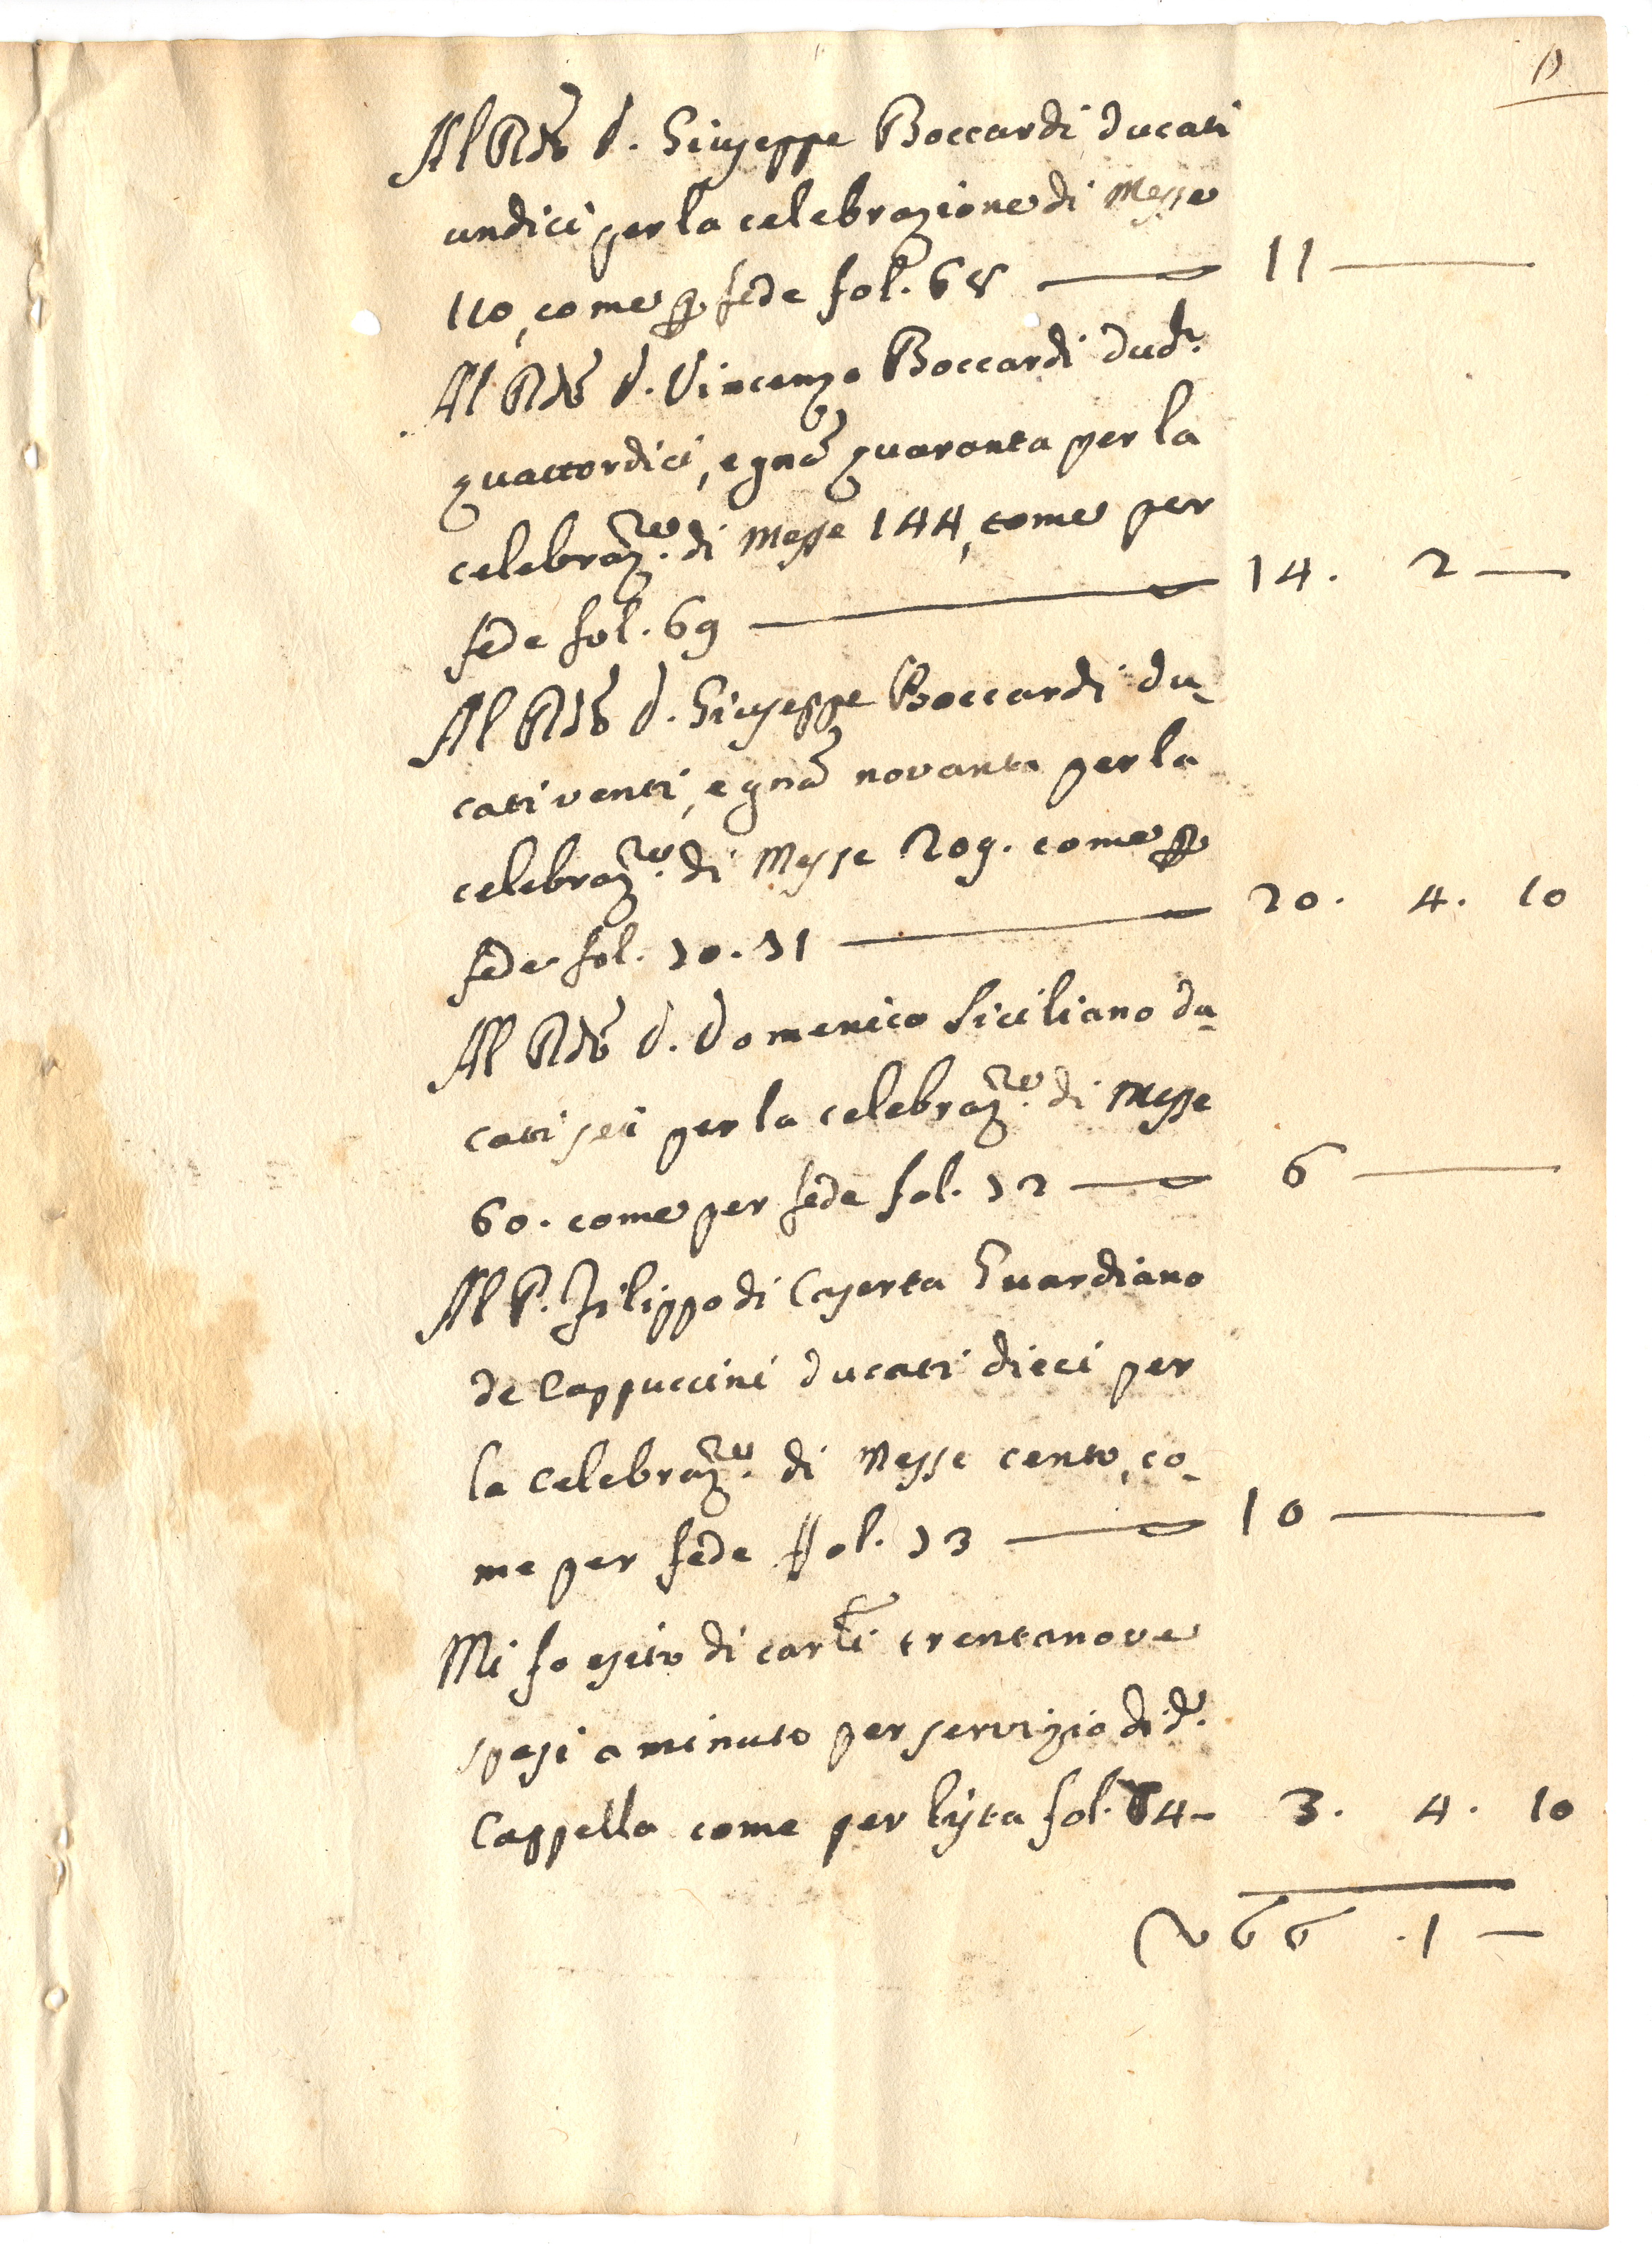 Al Rdo d. Giuseppe Boccardi ducati
undici per la celebrazione di Messe
110, come p fede fol. 68 — 11 —
Al Rdo d. Vincenzo Boccardi dud.
quattordici, e gna quaranta per la
celebraz.ne di Messe 144, come per
fede fol. 69 — 14. 2 —
Al Rdo d. Giuseppe Boccardi du-
cati venti, e gna novanta per la
celebraz.ne di Messe 209. come p
fede fol. 70. 71 — 20. 4. 10
Al Rdo d. Domenico Siciliano du-
cati sei per la celebraz.ne di Messe
60. come per fede fol. 72 — 6 —
Al P. Filippo di Caserta Guardiano
de Cappuccini ducati dieci per
la celebraz.ne di Messe cento, co-
me per fede fol. 73 — 10 —
Mi fo esito di carlini trentanove
spesi a minuto per servizio di d.a
Cappella come per lista fol. 74 - 3. 4. 10
66 . 1 —